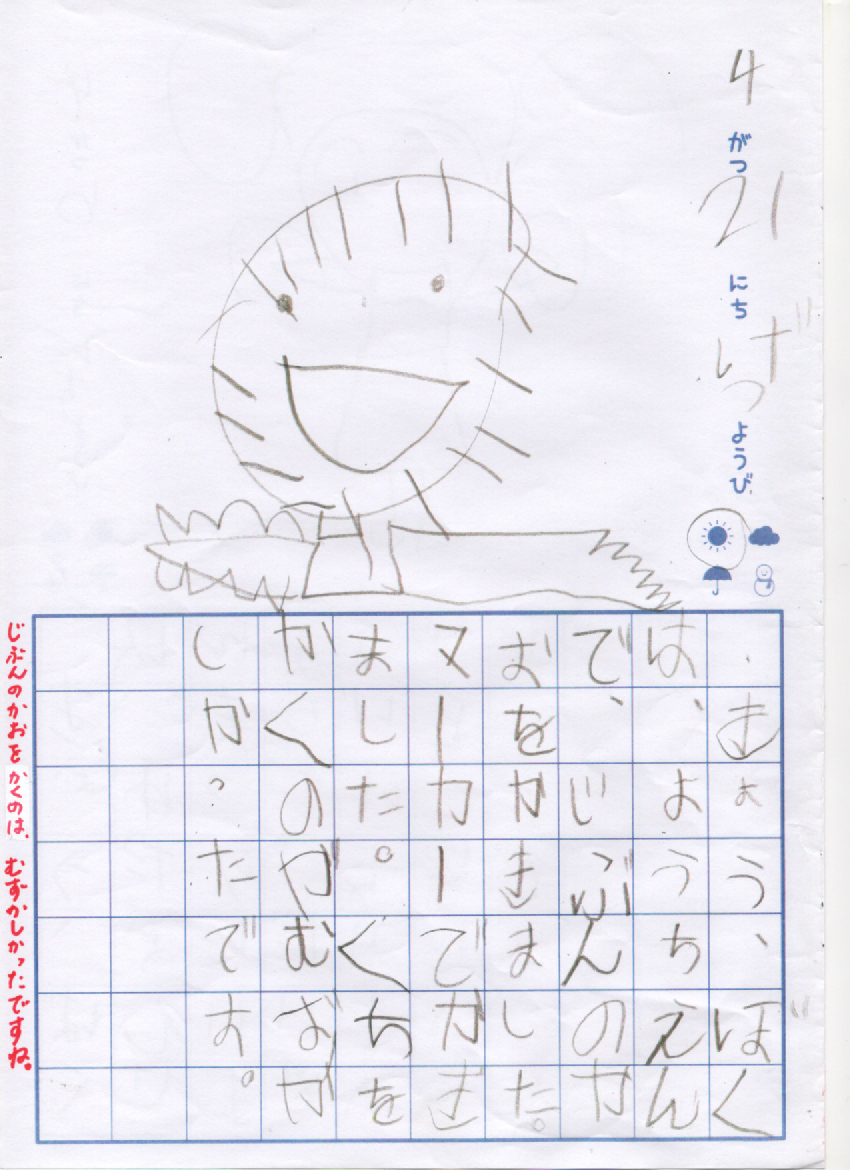 4がつ21にちげつようび
きょう、ぼく
は、ようちえん
で、じぶんのか
おをかきました。
マーカーでかき
ました。くちを
かくのがむずか
しかったです。
じぶんのかおをかくのは、むずかしかったですね。